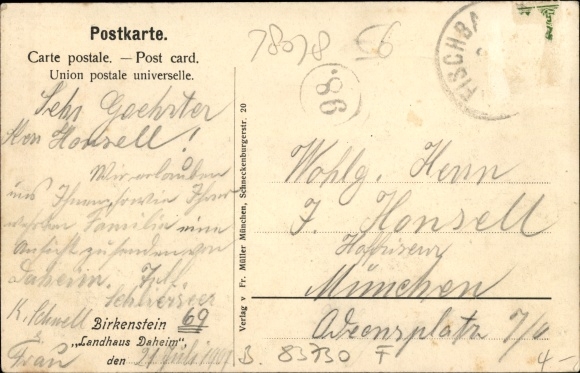 Postkarte.
Carte postale. — Post card.
Union postale universelle.
Sehr Geehrter
Herr Honsell!
Wir erlauben
uns Ihnen sowie Ihrer
werthen Familie eine
Ansicht zu senden von
Daheim.
Schliersee
K. Schnell
Frau
Birkenstein 69
„Landhaus Daheim"
den 21 Juli
Verlag v Fr. Müller München, Schneckenburgerstr. 20
78578
98.
FISCHBA
Wohlg. Herrn
F. Honsell
München
7/0
B. 83730 F
4-